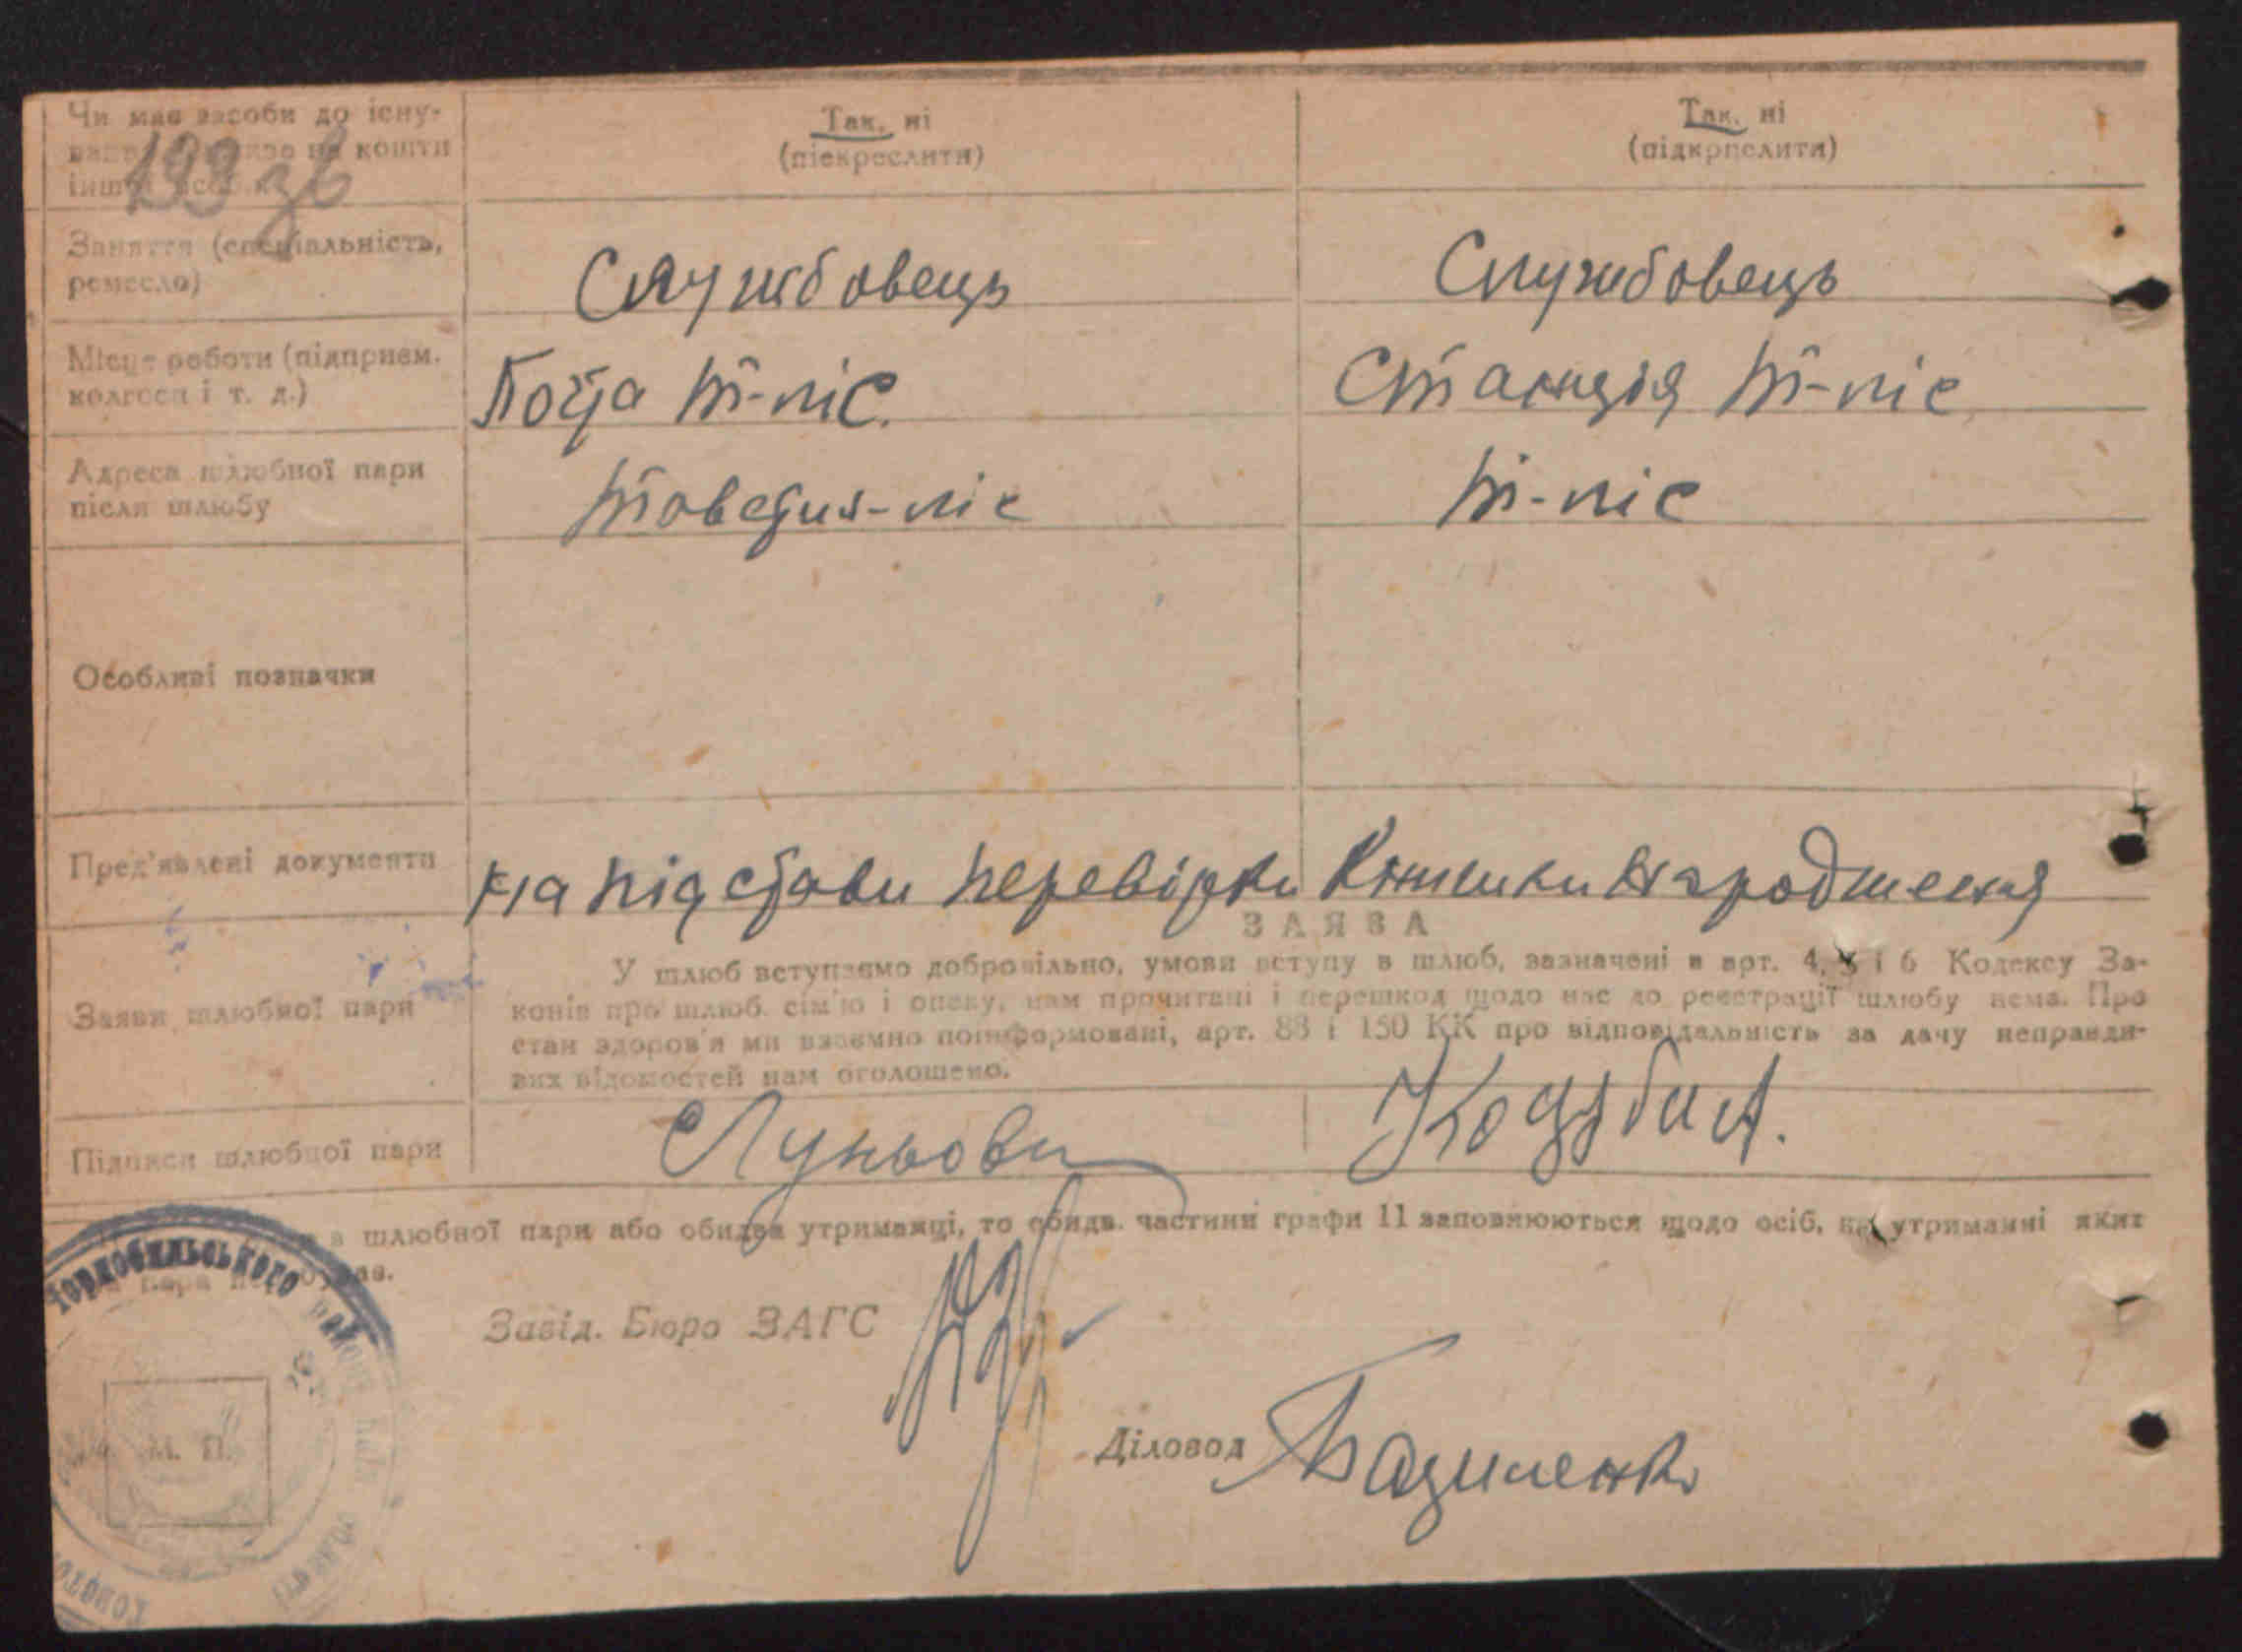 Чи має засоби до існу-
живе на кошти
інш
199 зв
Так, ні
(піекреслити)
Так, ні
(підкрпелити)
Заняття (спеціальність,
ремесло)
Службовець
Службовець
Місце роботи (підприєм.
колгосп і т. д.)
Пошта Т-ліс.
Станція Т-ліс
Адреса шлюбної пари
після шлюбу
Т-ліс
Особливі позначки
Пред'явлені документи
на підставі перевірки Книжки народження
ЗАЯВА
Заяви шлюбної пари
У шлюб вступаємо добровільно, умови вступу в шлюб, зазначені в арт. 4, 5 і 6 Кодексу За-
конів про шлюб, сім'ю і опеку, нам прочитані і перешкод щодо нас до реєстрації шлюбу нема. Про
стан здоров'я ми взаємно поінформовані, арт. 88 і 150 КК про відповідальність за дачу неправди-
вих відомостей нам оголошено.
Підписи шлюбної пари
шлюбної пари або обидва утриманці, то обидв. частини графи 11 заповнюються щодо осіб, на утриманні яких
пара
Завід. Бюро ЗАГС
Діловод
Чорнобильського район
М. П.